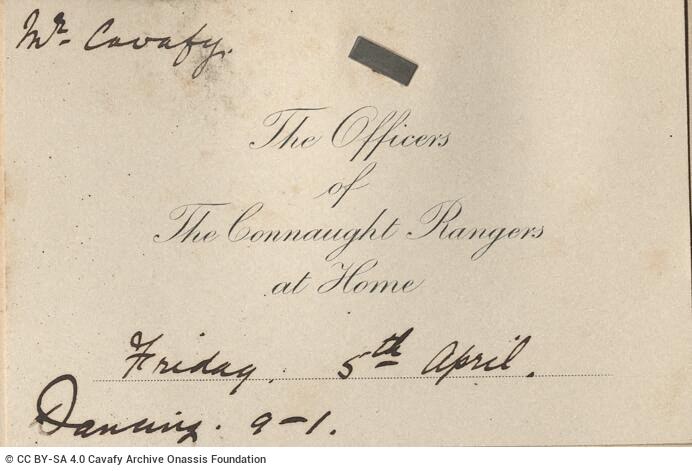 Mr. Cavafy.
The Officers
of
The Connaught Rangers
at Home
Friday, 5th April.
Dancing. 9-1.
© CC BY-SA 4.0 Cavafy Archive Onassis Foundation